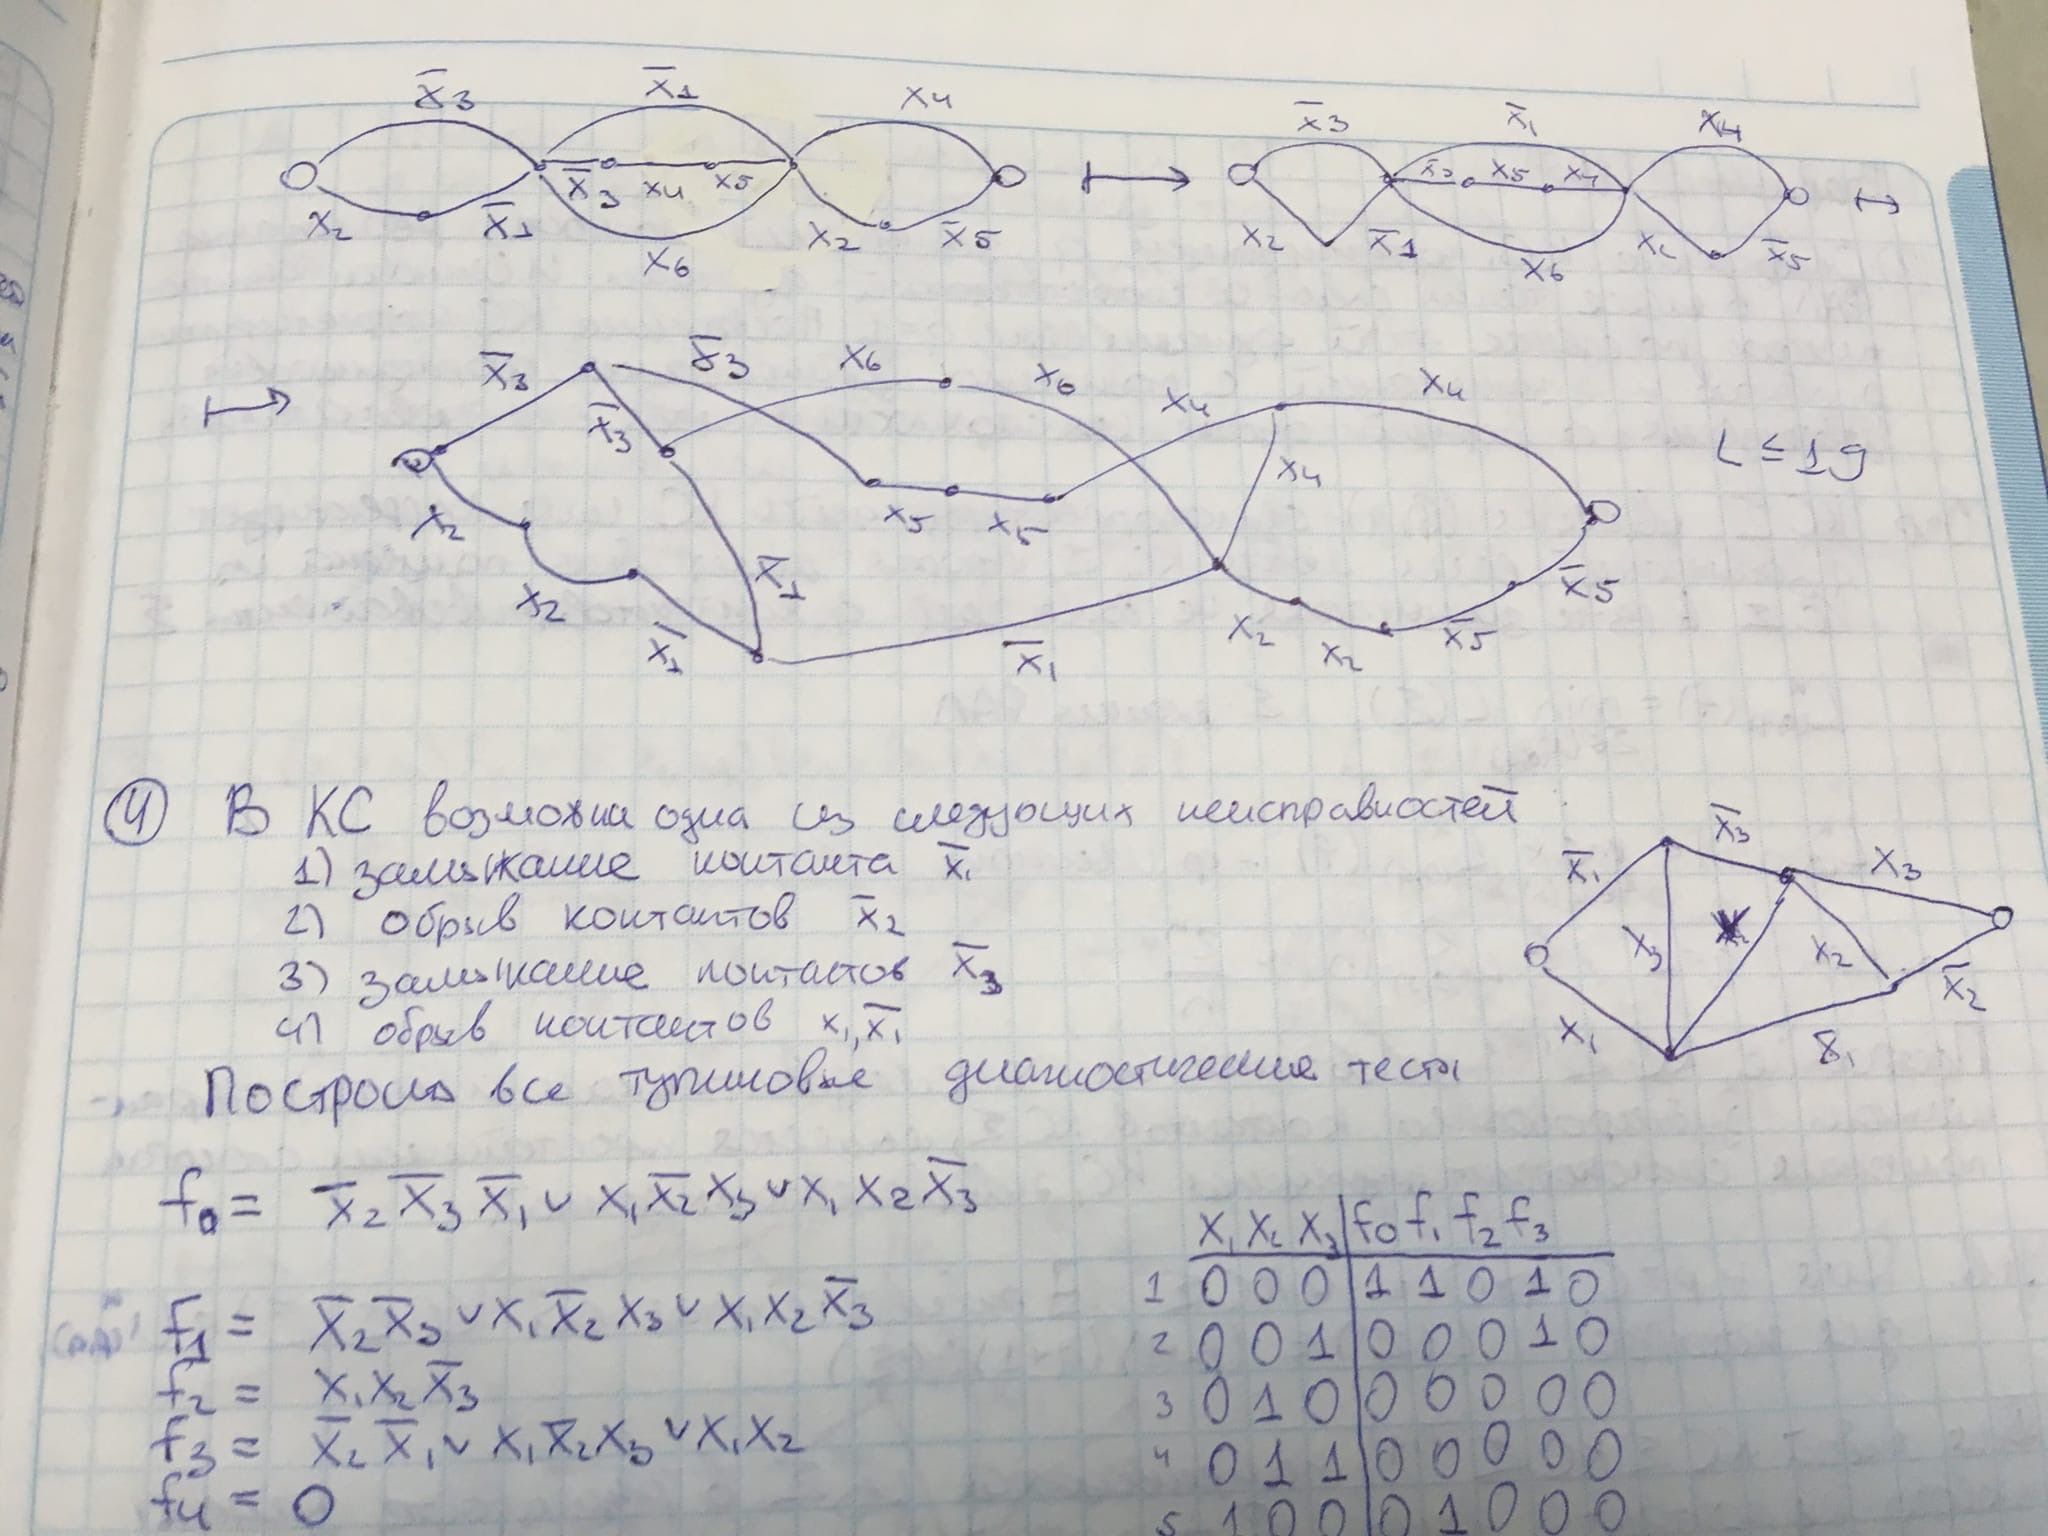 x̄3 x̄1 x4 x̄3 x̄1 x4
x̄3 x4 x5 x3 x5 x4
x2 x̄1 x6 x2 x̄5 x2 x̄1 x6 x2 x̄5
x̄3 x̄3 x6 x6 x4 x4
x̄3 x4 L ≤ 19
x2 x5 x5
x2 x̄1 x̄5
x̄1 x̄1 x2 x2 x̄5
④ В КС возможна одна из следующих неисправностей
1) замыкание контакта x̄1
2) обрыв контактов x̄2
3) замыкание контактов x̄3
4) обрыв контактов x1, x̄1
x̄1 x̄3 x3
x3 x2
x1 x̄1 x̄2
Построить все тупиковые диагностические тесты
f0 = x̄2 x̄3 x̄1 ∨ x1 x̄2 x3 ∨ x1 x2 x̄3
f1 = x̄2 x̄3 ∨ x1 x̄2 x3 ∨ x1 x2 x̄3
f2 = x1 x2 x̄3
f3 = x̄2 x̄1 ∨ x1 x̄2 x3 ∨ x1 x2
f4 = 0
x1 x2 x3 f0 f1 f2 f3
1 0 0 0 1 1 0 1 0
2 0 0 1 0 0 0 1 0
3 0 1 0 0 0 0 0 0
4 0 1 1 0 0 0 0 0
5 1 0 0 0 1 0 0 0